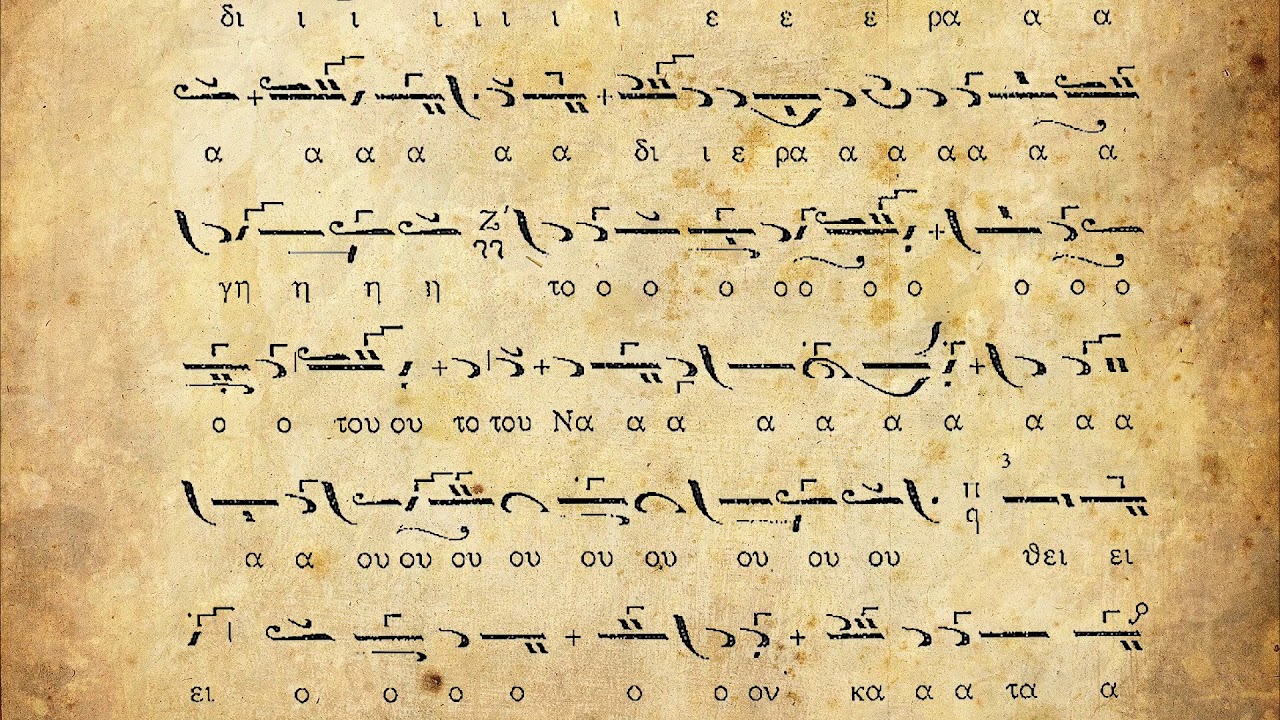 δι ι ι ι ι ι ι ι ε ε ε ρα α α
α α α α α α δι ι ε ρα α α α α α α
Ζ΄
γη η η η το ο ο ο ο ο ο ο ο ο ο
ο ο του ου το του Να α α α α α α α α α
3
π
q
α α ου ου ου ου ου ου ου ου ου θει ει
ει ο, ο ο ο ο ο ον κα α α τα α